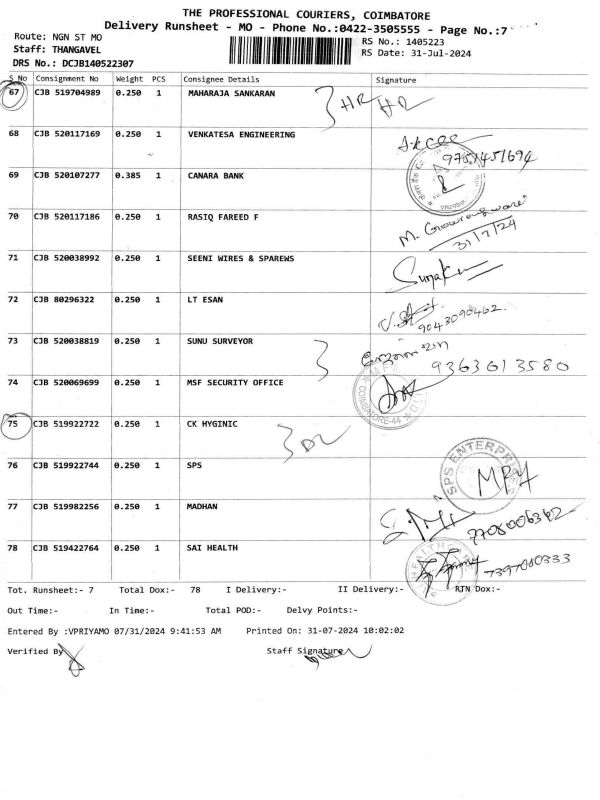 THE PROFESSIONAL COURIERS, COIMBATORE
Delivery Runsheet - MO - Phone No.:0422-3505555 - Page No.:7
Route: NGN ST MO
RS No.: 1405223
Staff: THANGAVEL
RS Date: 31-Jul-2024
DRS No.: DCJB140522307
S No Consignment No Weight PCS Consignee Details Signature
67 CJB 519704989 0.250 1 MAHARAJA SANKARAN HR HR
68 CJB 520117169 0.250 1 VENKATESA ENGINEERING
9751451694
69 CJB 520107277 0.385 1 CANARA BANK
70 CJB 520117186 0.250 1 RASIQ FAREED F
31/7/24
71 CJB 520038992 0.250 1 SEENI WIRES & SPAREWS
72 CJB 80296322 0.250 1 LT ESAN
9043090462.
73 CJB 520038819 0.250 1 SUNU SURVEYOR
9363013580
74 CJB 520069699 0.250 1 MSF SECURITY OFFICE
COIMBATORE-44
75 CJB 519922722 0.250 1 CK HYGINIC DL
76 CJB 519922744 0.250 1 SPS
SPS ENTERPRISES
77 CJB 519982256 0.250 1 MADHAN
7708006362
78 CJB 519422764 0.250 1 SAI HEALTH
7397080333
Tot. Runsheet:- 7 Total Dox:- 78 I Delivery:- II Delivery:- RTN Dox:-
Out Time:- In Time:- Total POD:- Delvy Points:-
Entered By :VPRIYAMO 07/31/2024 9:41:53 AM Printed On: 31-07-2024 10:02:02
Verified By Staff Signature